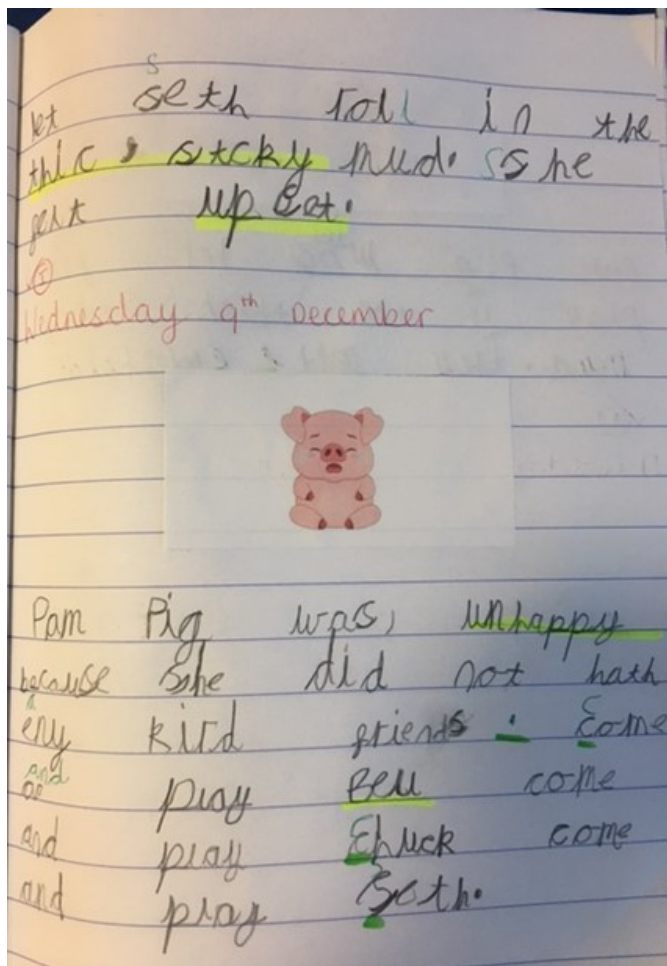 let seth roll in the
thic, stcky mud. sshe
gert up Set.
Wednesday 9th December
Pam Pig was, unhappy
because she did not hath
eny kird friends. Come
and play Bell come
and play Chuck come
and play Seth.